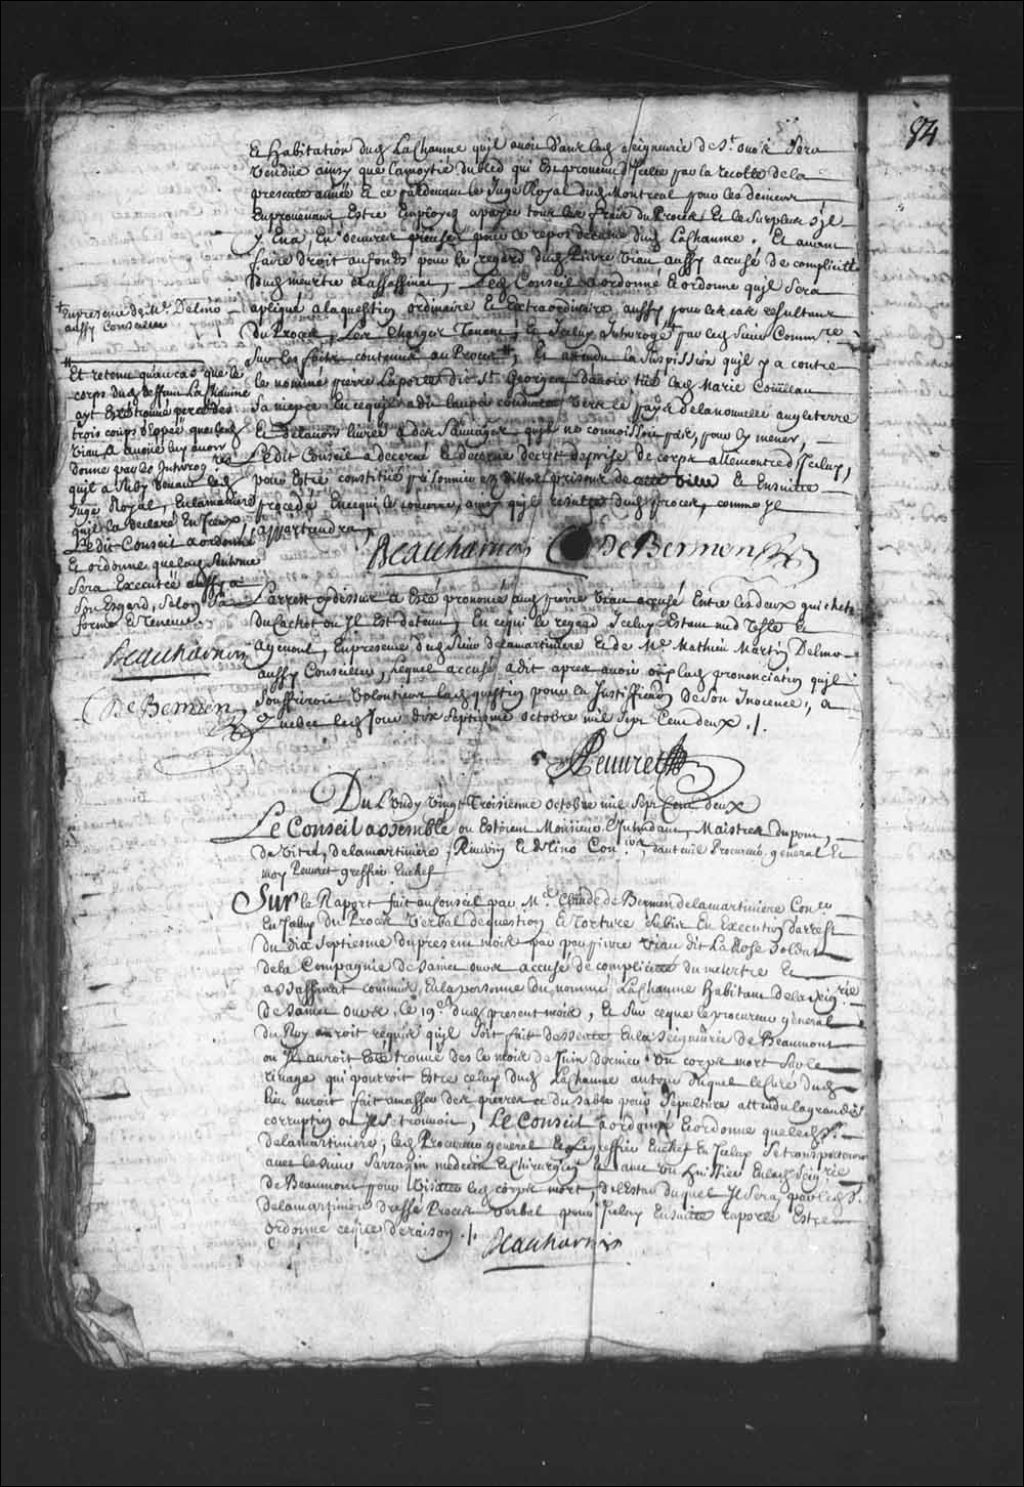 84
et habitation dud Lachaume quil avoit dans lad seigneurie de St. ours sera
vendüe ainsy que la moytié du bled qui est provenu d'Icelle par la recolte de la
presente année et ce pardevant le Juge Royal dud Montreal pour les deniers
en provenant Estre Employez a payer tous les fraix du Procez et le surplus s'il
y En a, En oeuvres pieuses pour le repos de l'ame dud Lachaume. Et avant
faire droit au fonds pour le regard dud Pierre Viau aussy accusé de complicitté
dud meurtre et assassinat, led Conseil a ordonné et ordonne quil sera
apliqué a la question ordinaire et extraordinaire aussy pour les cas resultant
du Procez, Les charges Tenant, et Iceluy Interrogé par led sieur Comm.re
sur les faitz contenus au Procez, Et attendu la suspission quil y a contre
le nommé pierre Laporte dit St. Georges davoir tué lad Marie
sa niepce En ce quil a dit lavoir conduitte vers le pays de la nouvelle angleterre
et de lavoir livrée a des sauvages quil ne connoissoit pas, pour ly mener,
Ledit Conseil a decerné et decerne decret de prise de corps allencontre d'Iceluy,
pour Estre constitué prisonnier ez dittes prisons de cette ville et Ensuitte
procedé En ce qui le concerne, ainsy quil resulte dud procez, comme Il
appartiendra,
Beauharnois De Bermen
+
En presence de Me. Delino
aussy Conseiller
#
Et retenu quau cas que le
corps dud deffunt La chaume
ayt Esté trouvé percé des
trois coups d'Epée que led
Viau a avoué luy avoir
donné par les Interrog.res
quil a suby devant led
Juge Royal, En la maniere
quil la declaré En Iceux
Ledit Conseil a ordonné
et ordonne que lad sentence
sera Executée aussy a
son Esgard, selon sa
forme et Teneur
Beauharnois
De Bermen
L'arrest cy dessus a Esté prononcé aud pierre Viau accusé Entre les deux guichets
du Cachot ou Il Est detenu, En ce qui le regard Iceluy Estant nud Teste et
agenoul, En presence dud sieur delamartiniere et de Me Mathieu Martin Delino
aussy Conseiller, Lequel accusé a dit apres avoir oüy lad prononciation quil
souffriroit volontiers lad question pour la Justiffication de son Inocence, a
Quebec led Jour dix septieme octobre mil sept Cent deux ./.
Peuvret
Du Lundy vingt Troisieme octobre mil sept Cent deux
Le Conseil assemblé ou Estoient Monsieur L'Intendant, Maistres dupont,
de Vitré, delamartiniere, Riverin et delino Con.ers, dauteuil Procureur general et
moy Peuvret greffier En chef
Sur le Raport fait au Conseil par Me. Claude de Bermen delamartiniere Con.er
En Iceluy du Procez verbal de question et Torture subie En Execution darrest
du dix septiesme du present mois par pierre viau dit La Rose soldat
dela Compagnie de Saint ours accusé de complicitté du meurtre et
assassinat commis En la personne du nommé Lachaume habitant dela seig.rie
de Saint ours, le 19.e dud present mois, Et sur ce que le procureur general
du Roy auroit requis quil soit fait dessente En la seigneurie de Beaumont
ou Il auroit Esté trouvé des le mois de Juin dernier un corps mort sur le
rivage qui pouroit Estre celuy dud Lachaume autour duquel le Curé dud
lieu auroit fait amasser des pierres et du sable pour sepulture attendu la grande
corruption ou Il se trouvoit, Le Conseil a ordonné et ordonne que led sr.
delamartiniere, led Procureur general et le greffier En chef En Iceluy se transporteront
avec le sieur Sarrazin medecin et avec un huissier En lad Seig.rie
de Beaumont pour visiter led corps mort, de l'Estat duquel Il sera par led sr.
delamartiniere dressé Procez verbal pour Iceluy Ensuitte raporté Estre
ordonné ce que de raison ./.
Beauharnois